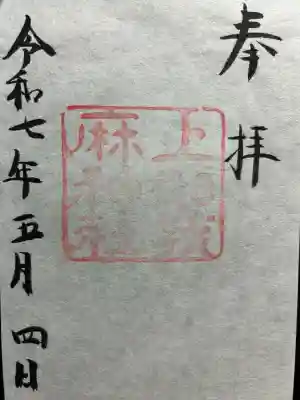 奉拝
上
麻
令和七年五月四日